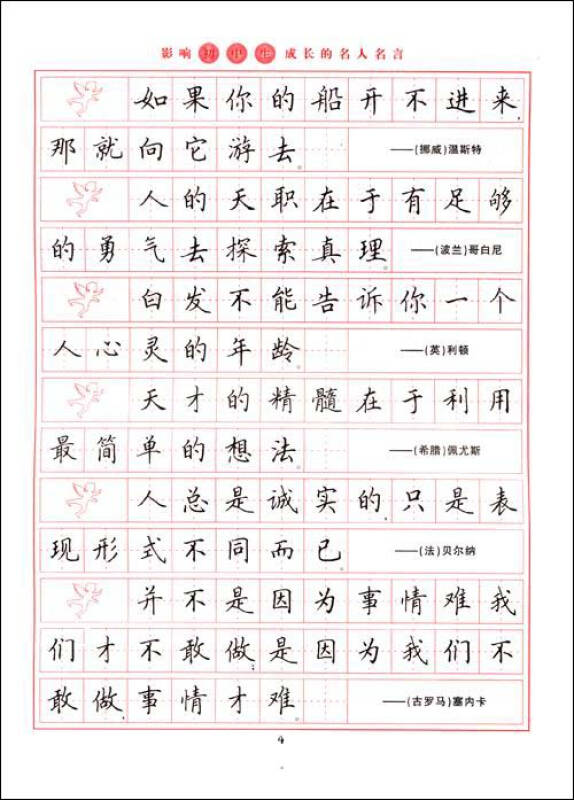 影响初中生成长的名人名言
如果你的船开不进来，
那就向它游去。 ——(挪威)温斯特
人的天职在于有足够
的勇气去探索真理。 ——(波兰)哥白尼
白发不能告诉你一个
人心灵的年龄。 ——(英)利顿
天才的精髓在于利用
最简单的想法。 ——(希腊)佩尤斯
人总是诚实的，只是表
现形式不同而已。 ——(法)贝尔纳
并不是因为事情难我
们才不敢做，是因为我们不
敢做事情才难。 ——(古罗马)塞内卡
4